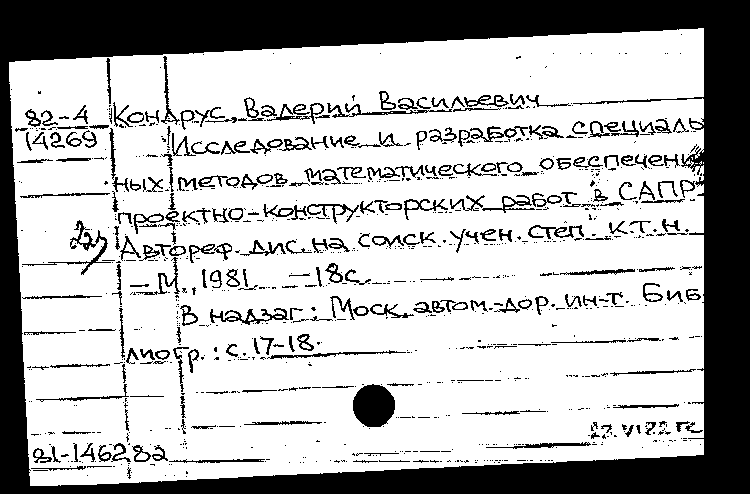 82-4 Кондрус, Валерий Васильевич
14269 Исследование и разработка специаль
ных методов математического обеспечени
проектно-конструкторских работ в САПР.
Автореф. дис. на соиск. учен. степ. к.т.н.
— М., 1981 — 18с.
В надзаг: Моск. автом.-дор. ин-т. Биб
лиогр.: с. 17-18.
81-146282